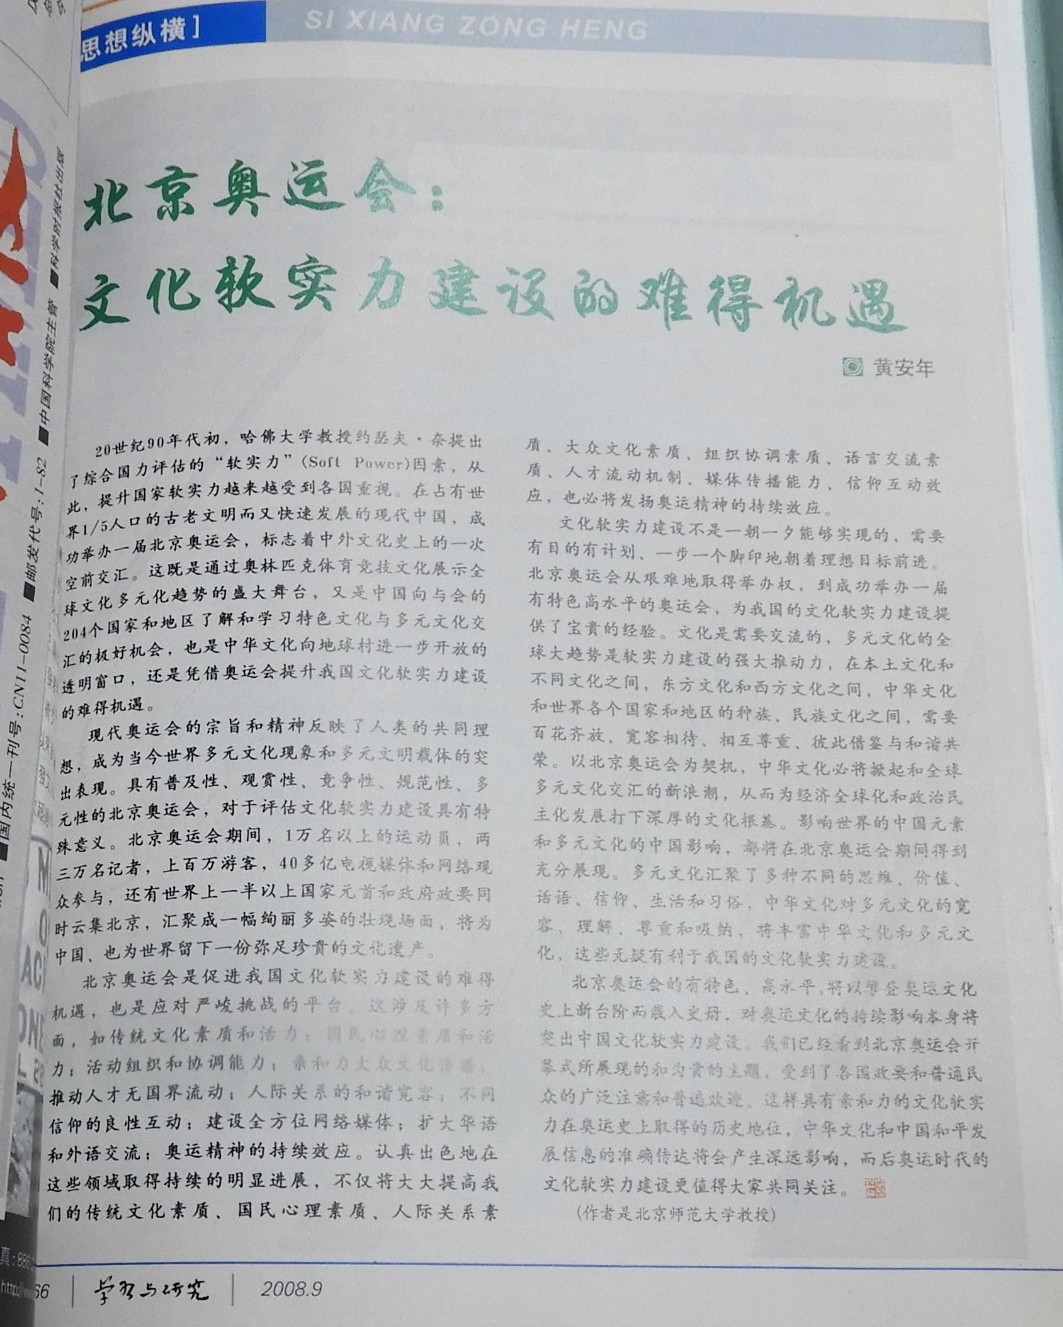 思想纵横]
SI XIANG ZONG HENG
北京奥运会：
文化软实力建设的难得机遇
黄安年
20世纪90年代初，哈佛大学教授约瑟夫·奈提出
了综合国力评估的“软实力”(Soft Power)因素，从
此，提升国家软实力越来越受到各国重视。在占有世
界1/5人口的古老文明而又快速发展的现代中国，成
功举办一届北京奥运会，标志着中外文化史上的一次
空前交汇。这既是通过奥林匹克体育竞技文化展示全
球文化多元化趋势的盛大舞台，又是中国向与会的
204个国家和地区了解和学习特色文化与多元文化交
汇的极好机会，也是中华文化向地球村进一步开放的
透明窗口，还是凭借奥运会提升我国文化软实力建设
的难得机遇。
现代奥运会的宗旨和精神反映了人类的共同理
想，成为当今世界多元文化现象和多元文明载体的突
出表现。具有普及性、观赏性、竞争性、规范性、多
元性的北京奥运会，对于评估文化软实力建设具有特
殊意义。北京奥运会期间，1万名以上的运动员，两
三万名记者，上百万游客，40多亿电视媒体和网络观
众参与，还有世界上一半以上国家元首和政府政要同
时云集北京，汇聚成一幅绚丽多姿的壮观场面，将为
中国、也为世界留下一份弥足珍贵的文化遗产。
北京奥运会是促进我国文化软实力建设的难得
机遇，也是应对严峻挑战的平台。这涉及许多方
面，如传统文化素质和活力；国民心理素质和活
力；活动组织和协调能力；亲和力大众文化传播；
推动人才无国界流动；人际关系的和谐宽容；不同
信仰的良性互动；建设全方位网络媒体；扩大华语
和外语交流；奥运精神的持续效应。认真出色地在
这些领域取得持续的明显进展，不仅将大大提高我
们的传统文化素质、国民心理素质、人际关系素
质、大众文化素质、组织协调素质、语言交流素
质、人才流动机制、媒体传播能力、信仰互动效
应，也必将发扬奥运精神的持续效应。
文化软实力建设不是一朝一夕能够实现的，需要
有目的有计划、一步一个脚印地朝着理想目标前进。
北京奥运会从艰难地取得举办权，到成功举办一届
有特色高水平的奥运会，为我国的文化软实力建设提
供了宝贵的经验。文化是需要交流的，多元文化的全
球大趋势是软实力建设的强大推动力，在本土文化和
不同文化之间，东方文化和西方文化之间，中华文化
和世界各个国家和地区的种族、民族文化之间，需要
百花齐放、宽容相待、相互尊重、彼此借鉴与和谐共
荣。以北京奥运会为契机，中华文化必将掀起和全球
多元文化交汇的新浪潮，从而为经济全球化和政治民
主化发展打下深厚的文化根基。影响世界的中国元素
和多元文化的中国影响，都将在北京奥运会期间得到
充分展现。多元文化汇聚了多种不同的思维、价值、
话语、信仰、生活和习俗，中华文化对多元文化的宽
容、理解、尊重和吸纳，将丰富中华文化和多元文
化，这些无疑有利于我国的文化软实力建设。
北京奥运会的有特色、高水平，将以攀登奥运文化
史上新台阶而载入史册，对奥运文化的持续影响本身将
突出中国文化软实力建设。我们已经看到北京奥运会开
幕式所展现的和为贵的主题，受到了各国政要和普通民
众的广泛注意和普遍欢迎。这样具有亲和力的文化软实
力在奥运史上取得的历史地位，中华文化和中国和平发
展信息的准确传达将会产生深远影响，而后奥运时代的
文化软实力建设更值得大家共同关注。
(作者是北京师范大学教授)
66
学习与研究
2008.9
■国内统一刊号:CN11-0084 ■邮发代号:1-82 ■中国科学院主管 ■科学时报社出版